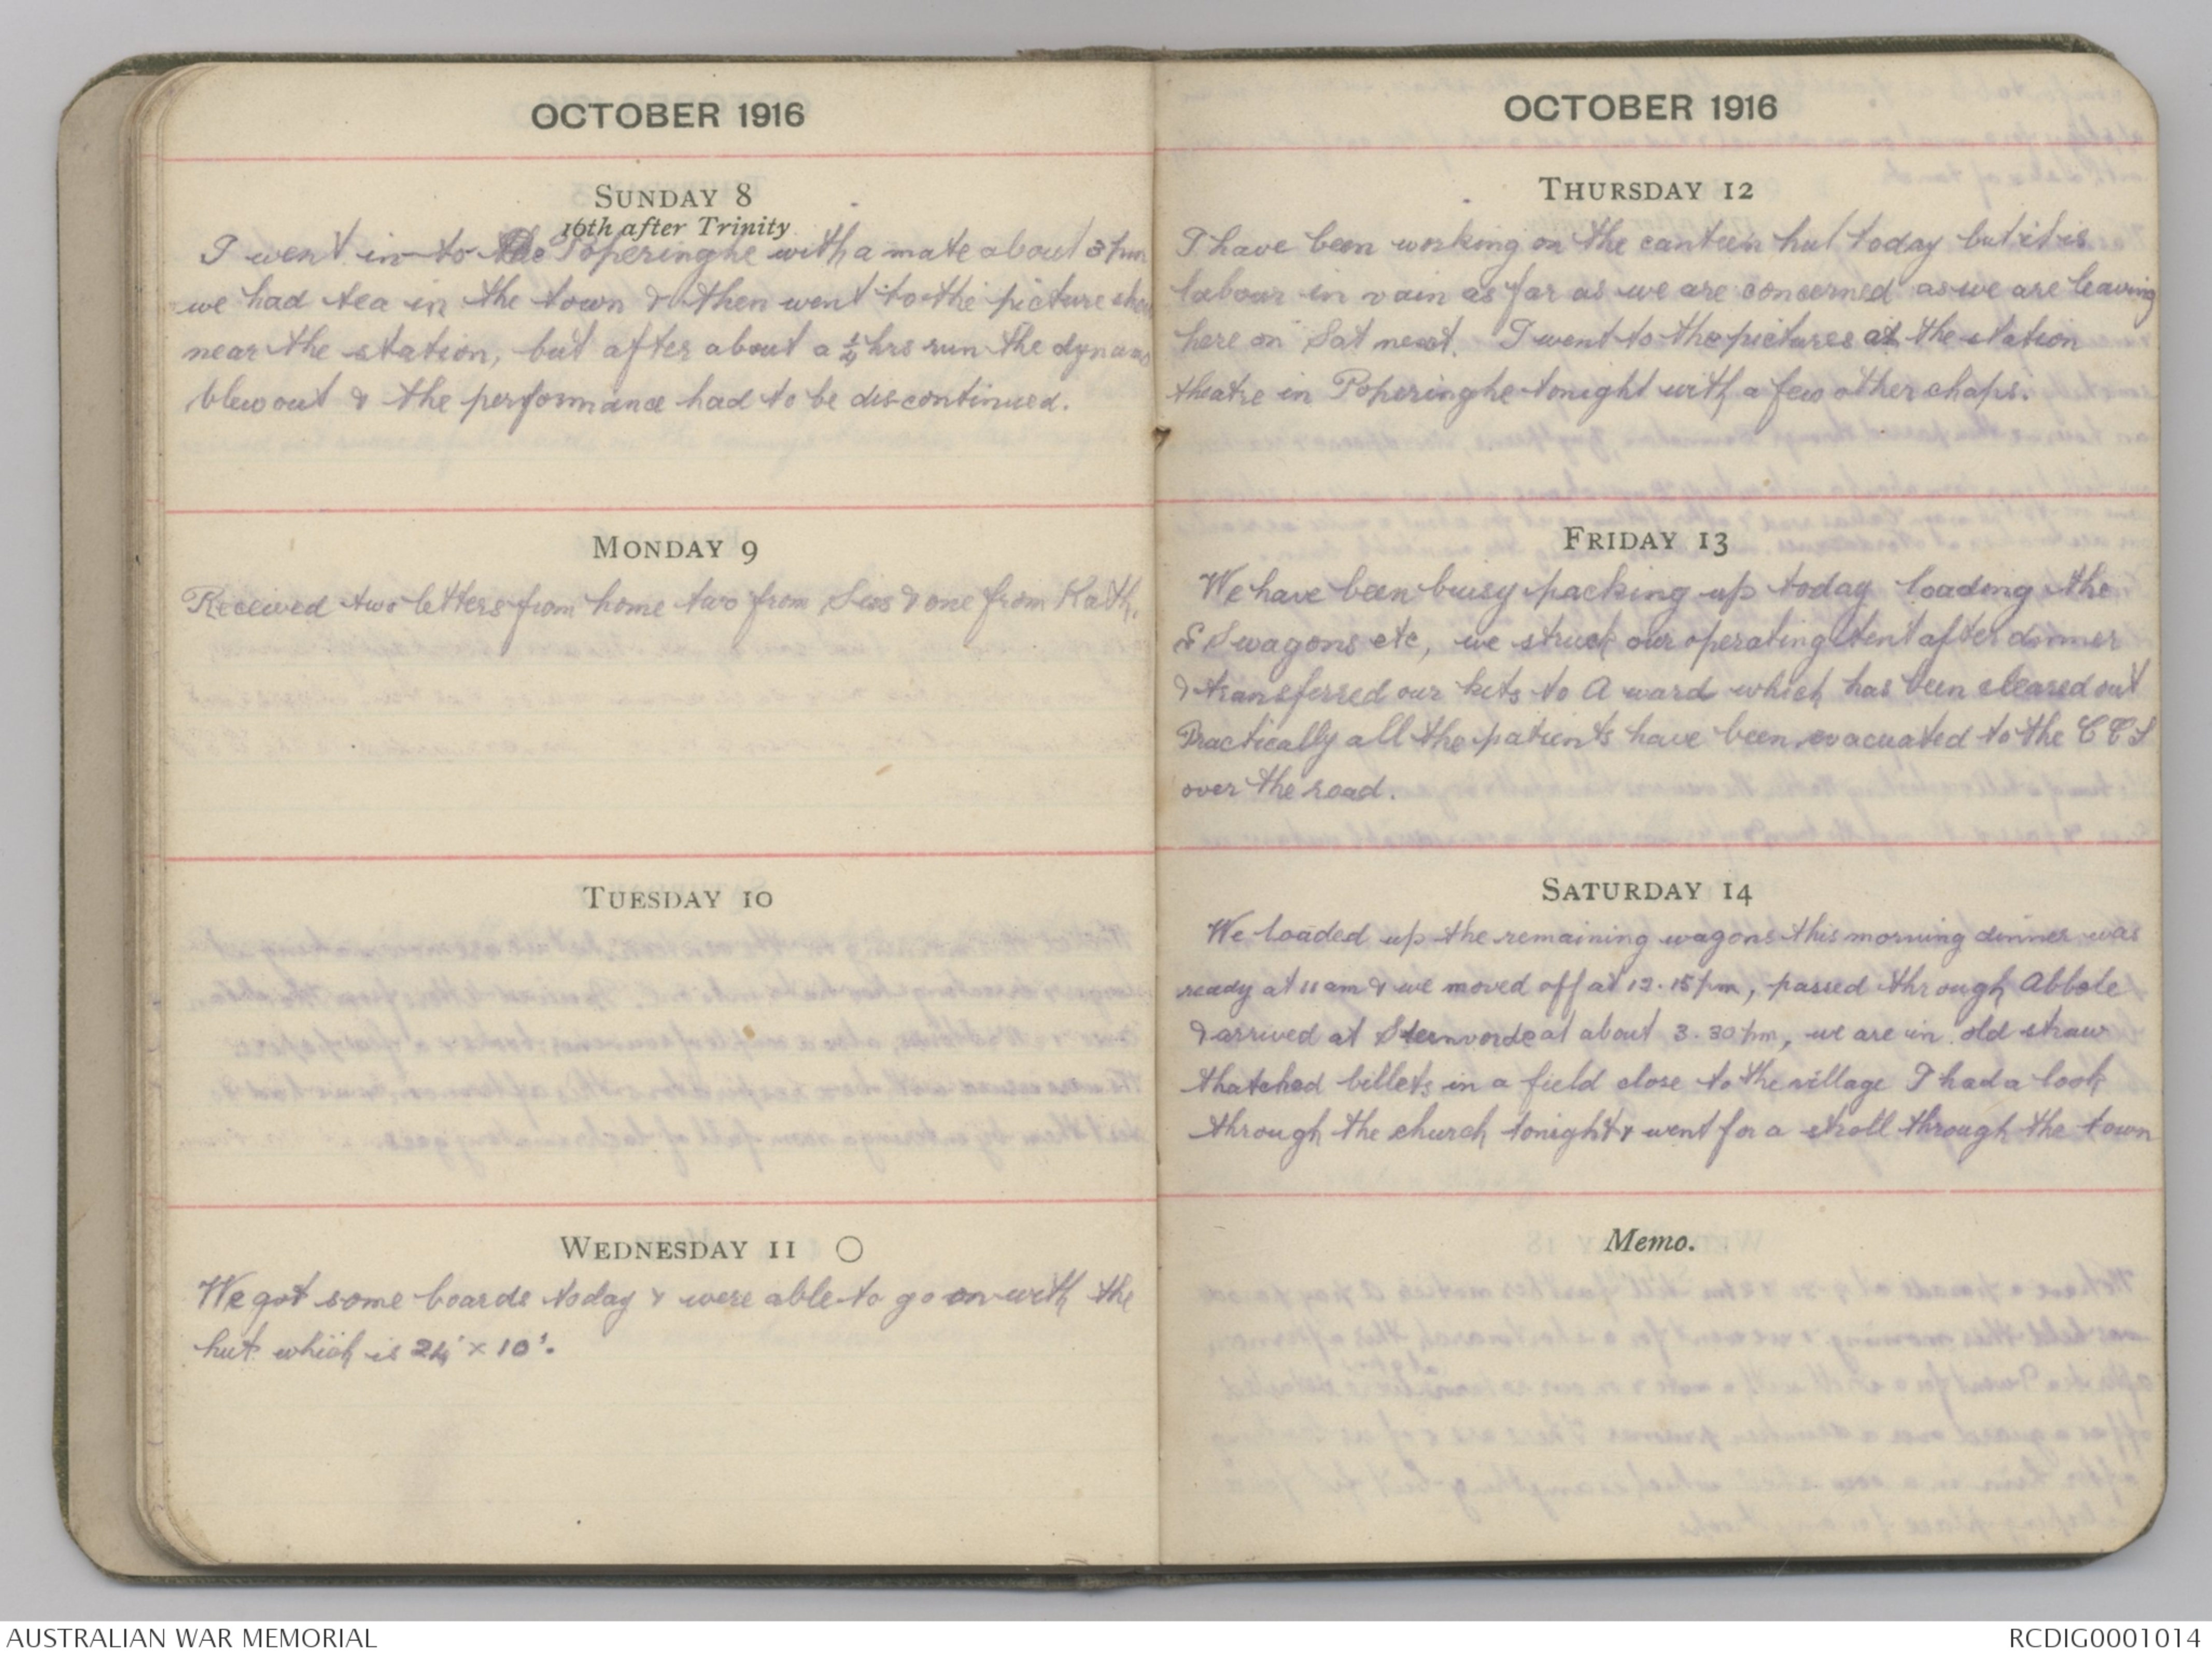 OCTOBER 1916
SUNDAY 8
16th after Trinity
I went in to Poperinghe with a mate about 3 pm
we had tea in the town & then went to the picture show
near the station, but after about a ½ hrs run the dynamo
blew out & the performance had to be discontinued.
MONDAY 9
Received two letters from home two from Siss & one from Kath.
TUESDAY 10
WEDNESDAY 11
We got some boards today & were able to go on with the
hut which is 24' x 10'.
OCTOBER 1916
THURSDAY 12
I have been working on the canteen hut today but it is
labour in vain as far as we are concerned as we are leaving
here on Sat next. I went to the pictures at the station
theatre in Poperinghe tonight with a few other chaps.
FRIDAY 13
We have been busy packing up today loading the
G S wagons etc, we struck our operating tent after dinner
& transferred our kits to A ward which has been cleared out
Practically all the patients have been evacuated to the C C S
over the road.
SATURDAY 14
We loaded up the remaining wagons this morning dinner was
ready at 11 am & we moved off at 12.15 pm, passed through Abbele
& arrived at Steenvorde at about 3.30 pm, we are in old straw
thatched billets in a field close to the village I had a look
through the church tonight & went for a stroll through the town
Memo.
AUSTRALIAN WAR MEMORIAL
RCDIG0001014